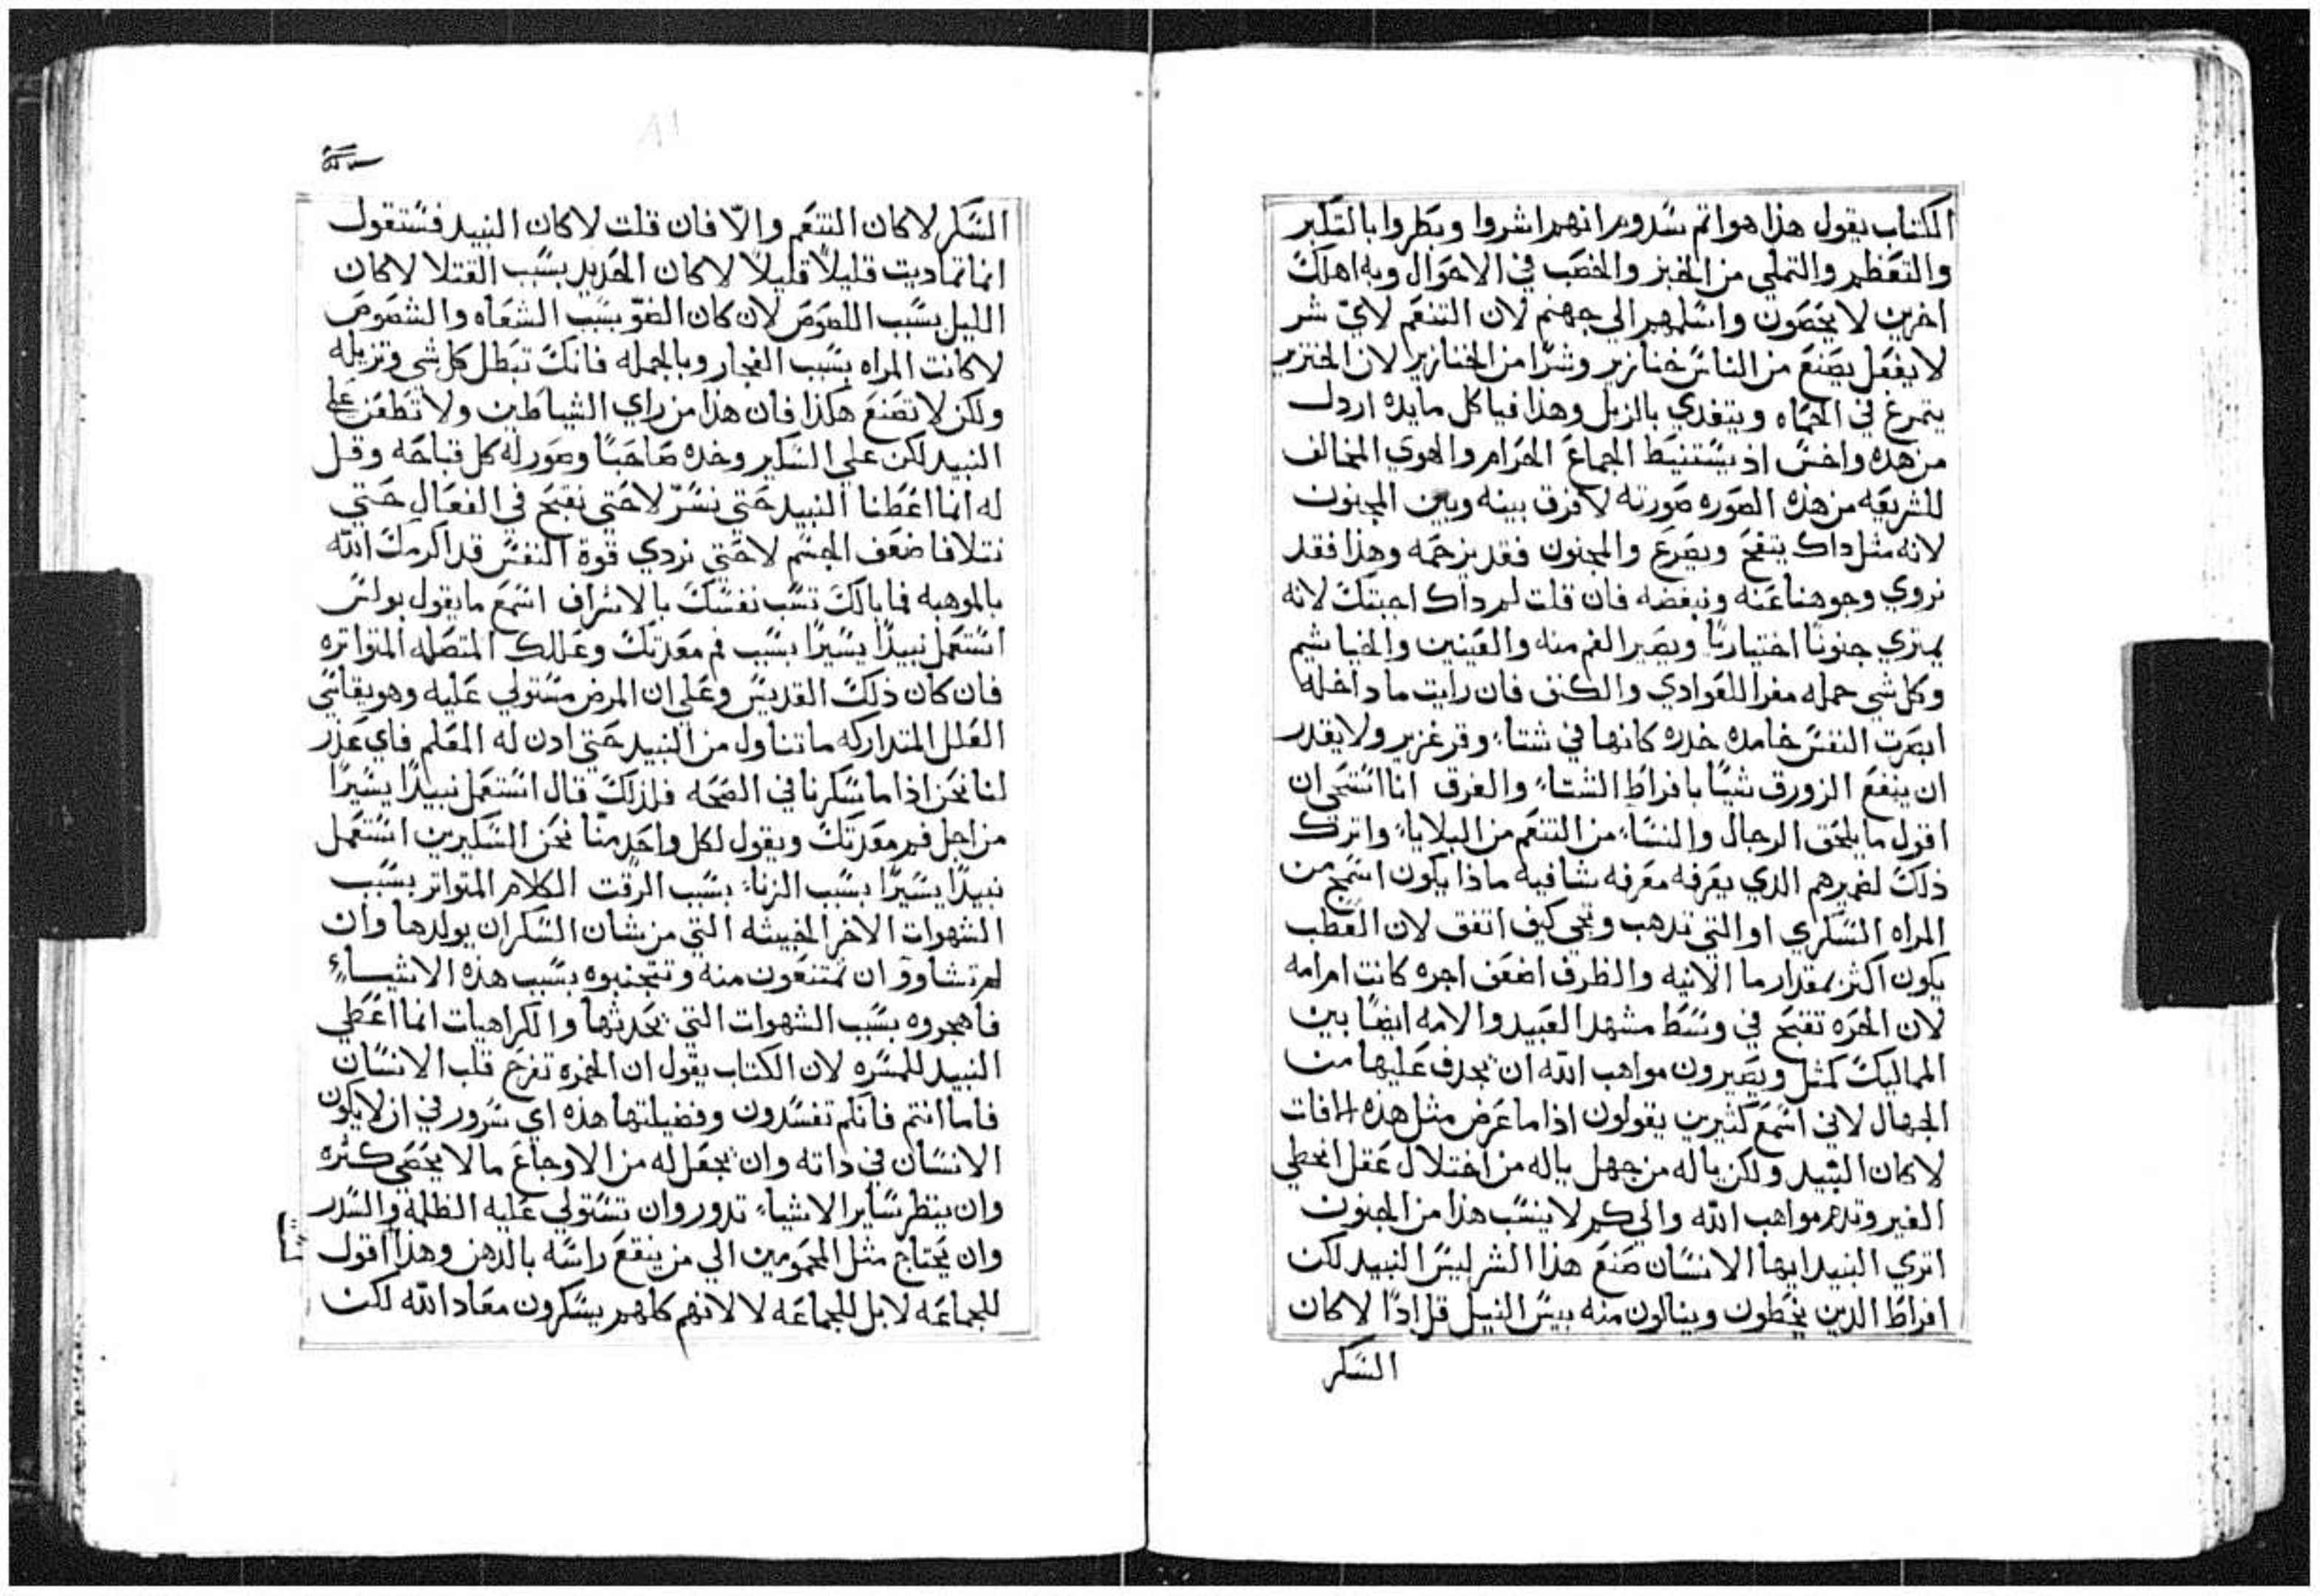 الكتاب يقول هذا هو اتم سدوم انهم اشروا وبطروا بالتكبر
والتعظم والتملي من الخبز والخصب في الاحوال وبه اهلك
اخرين لا يحصون واسلمهم الي جهنم لان التنعم لايّ شر
لا يفعل يصنع من الناس خنازير وشرّا من الخنازير لان الخنزير
يتمرغ في الحماه ويتغدي بالزبل وهذا فياكل مايده اردل
من هده واخس اذ يستنبط الجماع الحرام والهوي المخالف
للشريعه من هذه الصوره صورته لا فرق بينه وبين المجنون
لانه مثل داك يتفح ويصرع والمجنون فقد نرحمه وهذا فقد
نروي وجوهنا عنه ونبغضه فان قلت لم داك اجبتك لانه
يمتري جنونًا اختياريًا ويصير الفم منه والعينين والخياشيم
وكل شي حمله مفرا للغوادي والكنف فان رايت ما داخله
ابصرت النفس خامده خدره كانها في شتاء وقر غزير ولا يقدر
ان ينفع الزورق شيًا بافراط الشتاء والغرق انا استحي ان
اقول ما يلحق الرجال والنساء من التنعم من البلايا واترك
ذلك لضميرهم الدي يعرفه معرفه شافيه ماذا يكون اسمج من
المراه السكري او التي تدهب وتجي كيف اتفق لان العطب
يكون اكثر بمقدار ما الانيه والظرف اضعف اجره كانت ام امه
لان الحره تقبح في وسط مشهد العبيد والامه ايضًا بين
المماليك كمثل ويصيرون مواهب الله ان يجدف عليها من
الجهال لاني اسمع كثيرين يقولون اذا ما عرض مثل هذه الافات
لا كان النبيد ولكن ياله من جهل ياله من اختلال عقل اتخطي
الغير وتدم مواهب الله والي كم لا ينسب هذا من الجنون
اتري النبيد ايها الانسان صنع هذا الشر ليس النبيد لكن
افراط الدين يخطون وينالون منه بيس النيل قل ادًا لا كان
السكر
السكر لا كان التنعم والّا فان قلت لا كان النبيد فستقول
اذا تماديت قليلًا قليلًا لا كان الحديد بسبب القتلا لا كان
الليل بسبب اللصوص لا كان الضوّ بسبب السعاه والشصوص
لا كانت المراه بسبب الفجار وبالجمله فانك تبطل كل شي وتزيله
ولكن لا تصنع هكذا فان هذا من راي الشياطين ولا تطعن علي
النبيد لكن علي السكير وخده صاحبًا وصور له كل قباحه وقل
له انما اعطنا النبيد حتي نسرّ لا حتي نقبح في الفعال حتي
نتلافا ضعف الجسم لا حتي نردي قوة النفس قد اكرمك الله
بالموهبه فما بالك تسب نفسك بالاسراف اسمع ما يقول بولس
استعمل نبيدًا يسيرًا بسبب فم معدتك وعللك المتصله المتواتره
فان كان ذلك القديس وعلي ان المرض مستولي عليه وهو يقاسي
العلل المتداركه ما تناول من النبيد حتي ادن له المعلم فاي عدر
لنا نحن اذا ما سكرنا في الصحه فلذلك قال استعمل نبيدًا يسيرًا
من اجل فم معدتك ويقول لكل واحد منّا نحن السكيرين استعمل
نبيدًا يسيرًا بسبب الزناء بسبب الرفت الكلام المتواتر بسبب
الشهوات الاخر الخبيثه التي من شان السكر ان يولدها وان
لم تشاووّ ان تمتنعون منه وتتجنبوه بسبب هذه الاشياء
فاهجروه بسبب الشهوات التي يحدثها والكراهيات انما اعطي
النبيد للمسره لان الكتاب يقول ان الخمره تفرح قلب الانسان
فاما انتم فانكم تفسدون وفضيلتها هذه اي سرور في ان لا يكون
الانسان في داته وان يجعل له من الاوجاع ما لا يحصي كثره
وان ينظر ساير الاشياء تدور وان تستولي عليه الظلمه والسدر
وان يحتاج مثل المحمومين الي من ينقع راسه بالدهن وهذا اقول
للجماعه لا بل للجماعه لا لانهم كلهم يسكرون معاد الله لكن